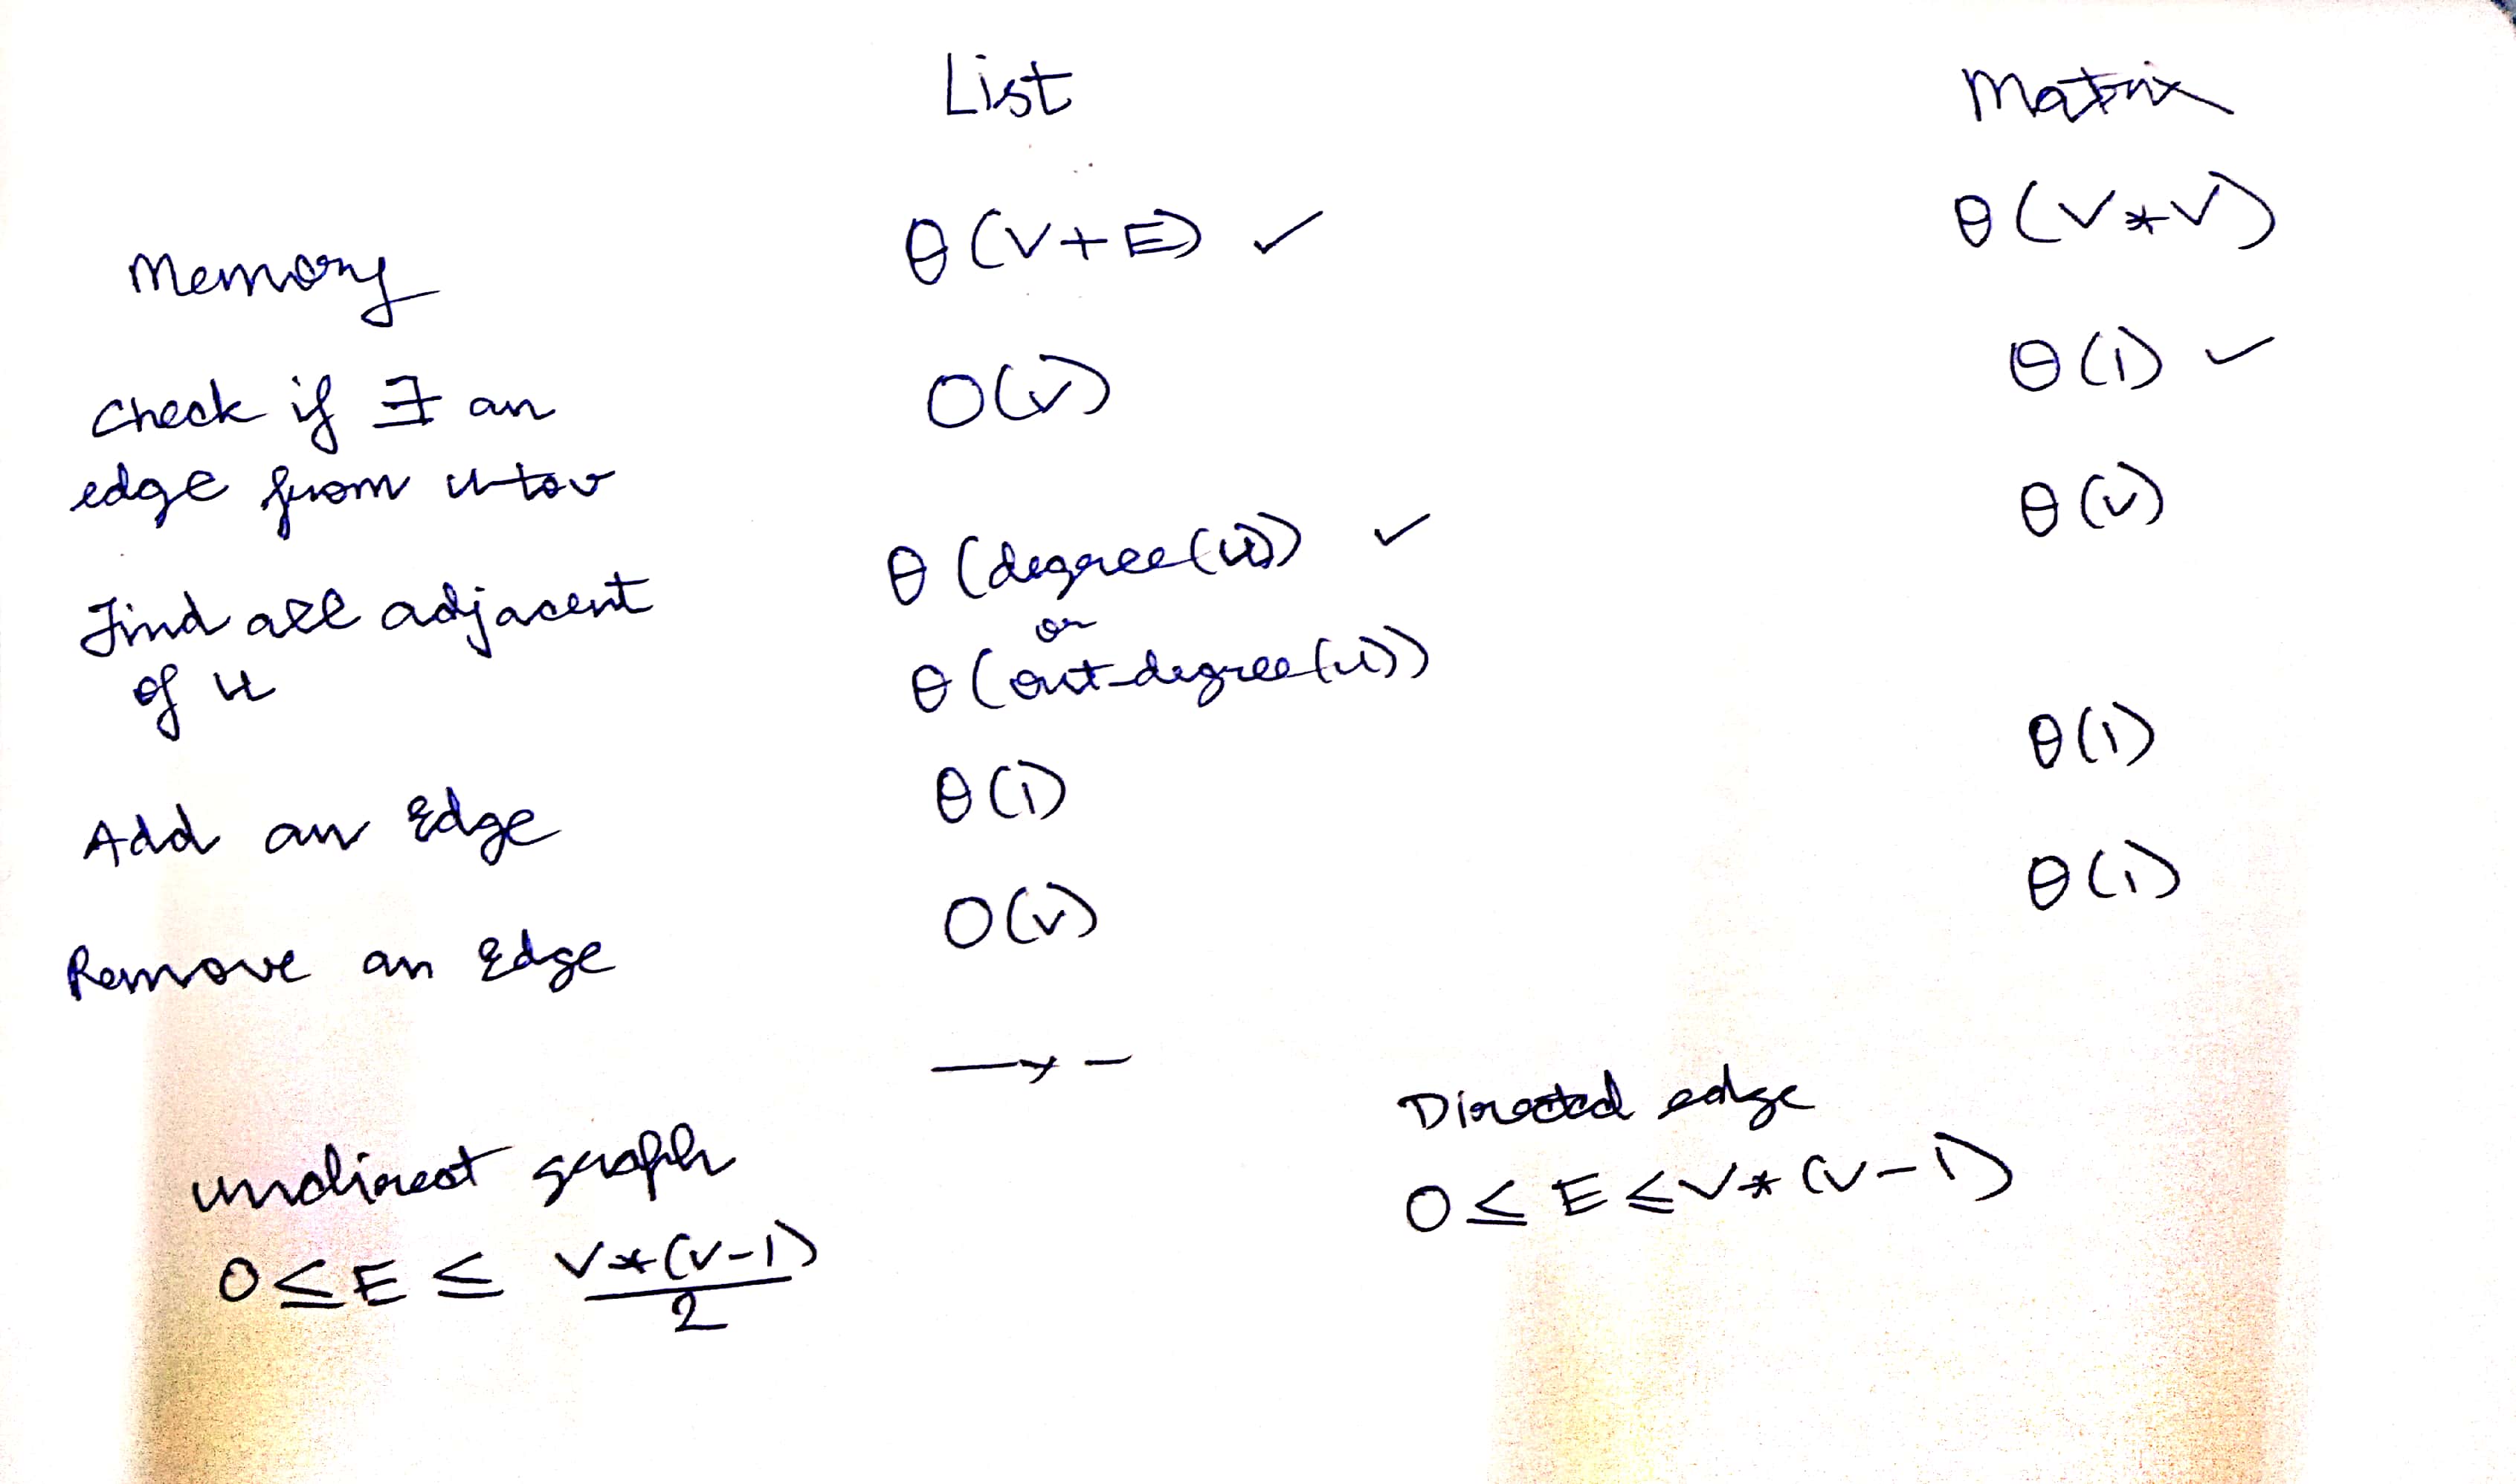 List Matrix
Memory θ(V+E) ✓ θ(V*V)
Check if ∃ an O(V) θ(1) ✓
edge from u to v θ(V)
Find all adjacent θ(degree(u)) ✓
of u or
θ(out-degree(u))
Add an Edge θ(1) θ(1)
Remove an Edge O(V) θ(1)
undirect graph
0 ≤ E ≤ V*(V-1)
2
Directed edge
0 ≤ E ≤ V*(V-1)